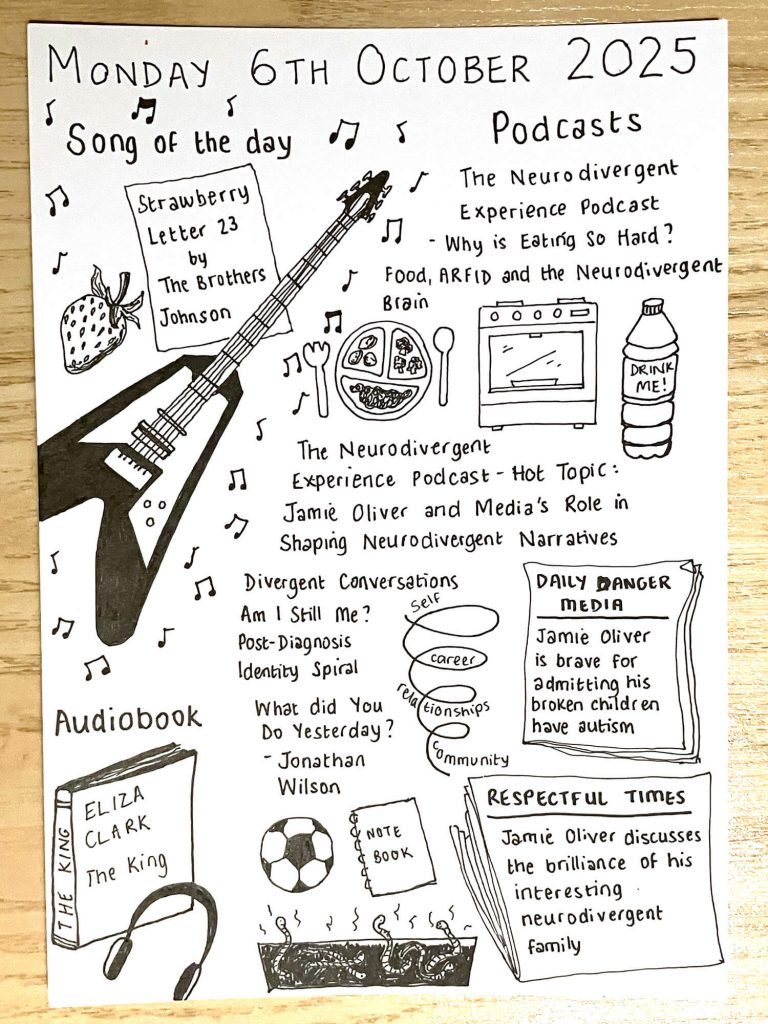 MONDAY 6TH OCTOBER 2025
Song of the day
Strawberry
Letter 23
by
The Brothers
Johnson
Podcasts
The Neurodivergent
Experience Podcast
- Why is Eating So Hard?
Food, ARFID and the Neurodivergent
Brain
DRINK
ME!
The Neurodivergent
Experience Podcast - Hot Topic:
Jamie Oliver and Media's Role in
Shaping Neurodivergent Narratives
Divergent Conversations
Am I Still Me?
Post-Diagnosis
Identity Spiral
Self
career
relationships
community
DAILY DANGER
MEDIA
Jamie Oliver
is brave for
admitting his
broken children
have autism
What did You
Do Yesterday?
- Jonathan
Wilson
NOTE
BOOK
RESPECTFUL TIMES
Jamie Oliver discusses
the brilliance of his
interesting
neurodivergent
family
Audiobook
THE KING
ELIZA
CLARK
The King